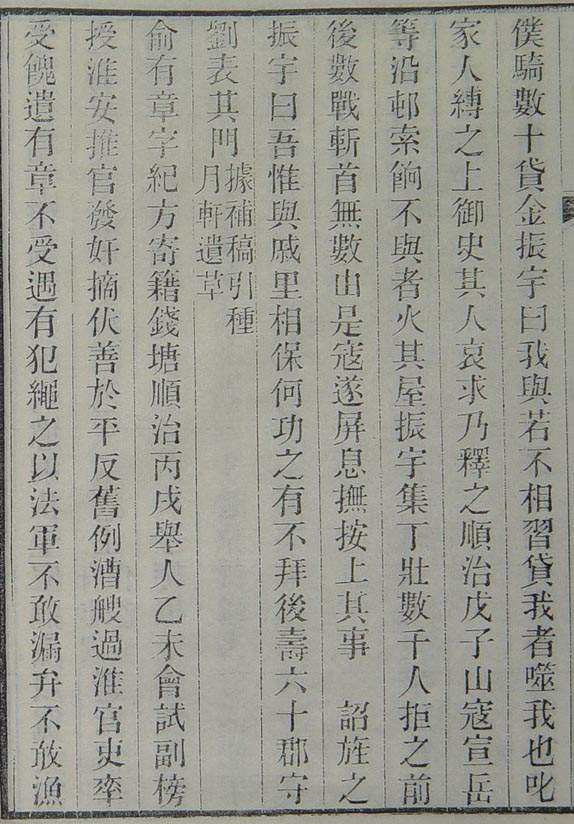 僕騎數十貸金振宇曰我與若不相習貸我者噬我也叱
家人縛之上御史其人哀求乃釋之順治戊子山寇宣岳
等沿邨索餉不與者火其屋振宇集丁壯數千人拒之前
後數戰斬首無數山是寇遂屏息撫按上其事　詔旌之
振宇曰吾惟與戚里相保何功之有不拜後壽六十郡守
劉表其門
據補稿引種
月軒遺草
俞有章字紀方寄籍錢塘順治丙戌舉人乙未會試副榜
授淮安推官發奸摘伏善於平反舊例漕艘過淮官吏率
受餽遺有章不受遇有犯繩之以法軍不敢漏弁不敢漁